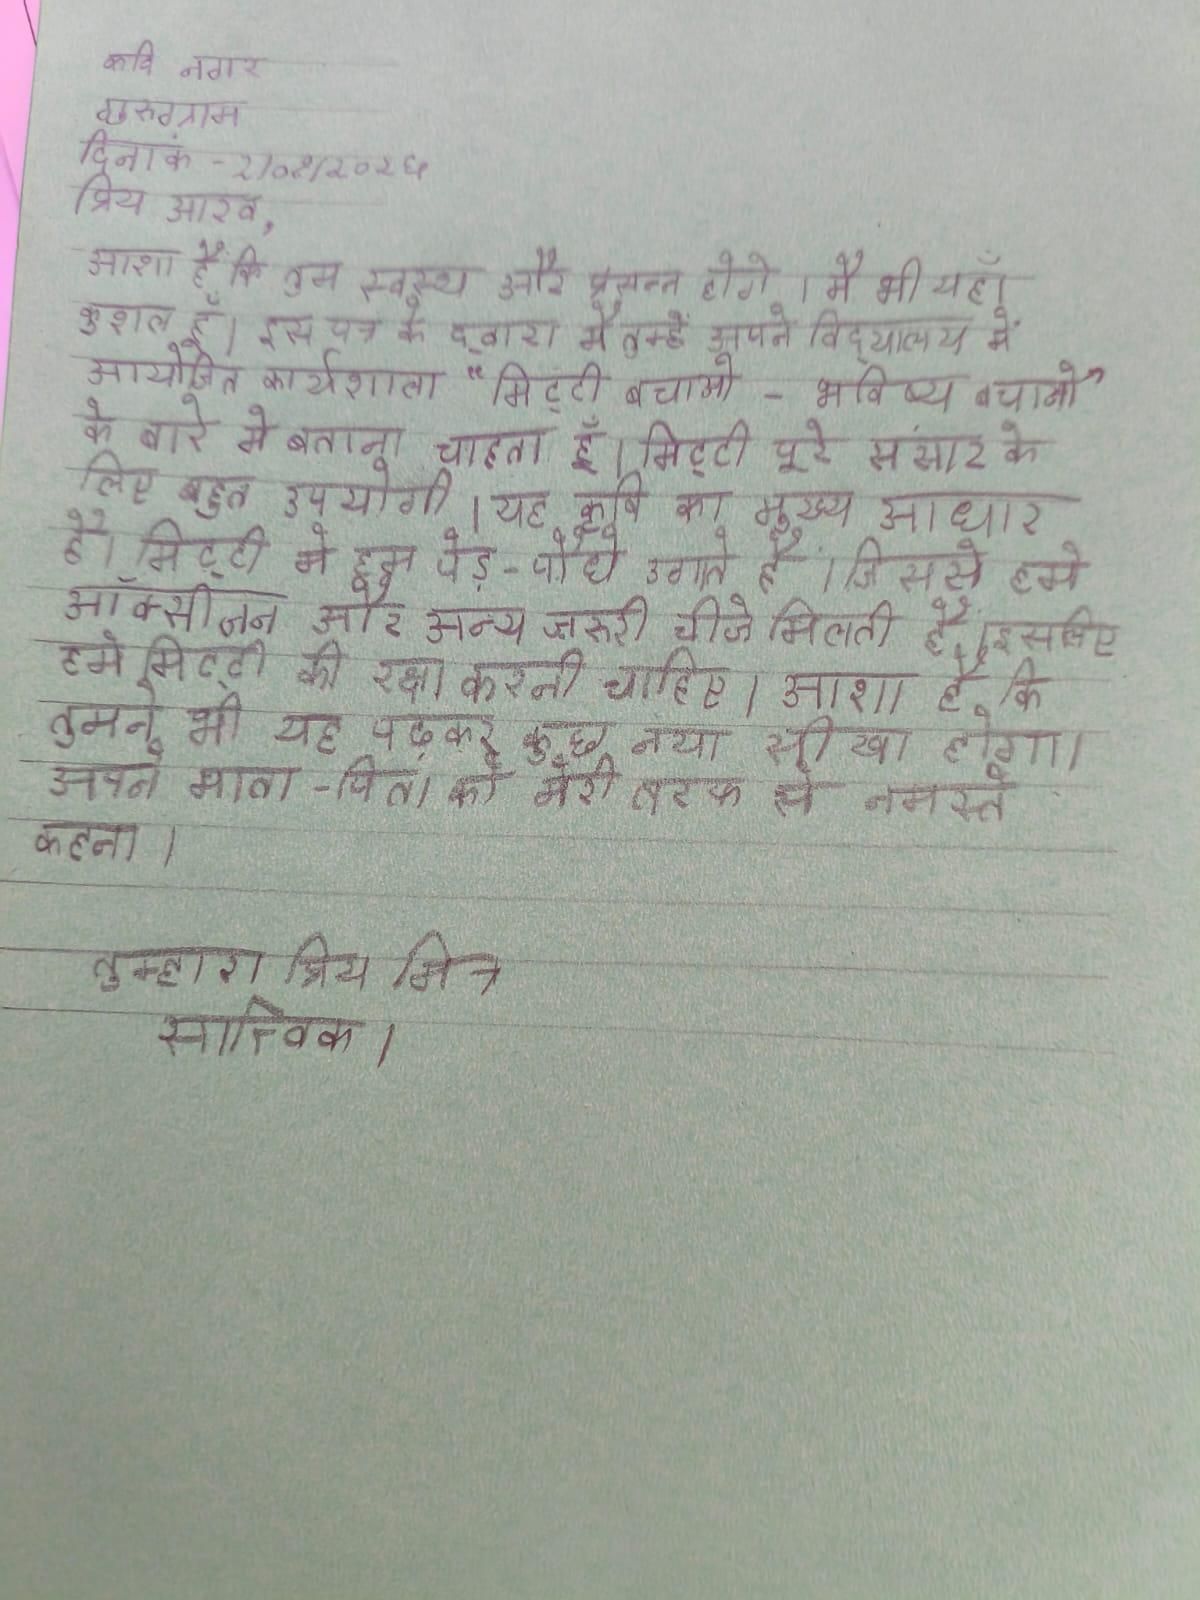 कवि नगर
गुरुग्राम
दिनाकं -
प्रिय आरव,
आशा है कि तुम स्वस्थ और प्रसन्न होंगे । मैं भी यहाँ
कुशल हूँ। इस पत्र के द्वारा मैं तुम्हें अपने विद्यालय में
आयोजित कार्यशाला "मिट्टी बचाओ - भविष्य बचाओ"
के बारे मे बताना चाहता हूँ। मिट्टी पूरे संसार के
लिए बहुत उपयोगी । यह कृषि का मुख्य आधार
है। मिट्टी मे हम पेड़ -पौधे उगाते हैं । जिससे हमे
ऑक्सीजन और अन्य जरूरी चीजे मिलती हैं। इसलिए
हमे मिट्टी की रक्षा करनी चाहिए। आशा है कि
तुमने भी यह पढ़कर कुछ नया सीखा होगा।
अपने माता -पिता को मेरी तरफ से नमस्ते
कहना ।
तुम्हारा प्रिय मित्र
सात्विक ।